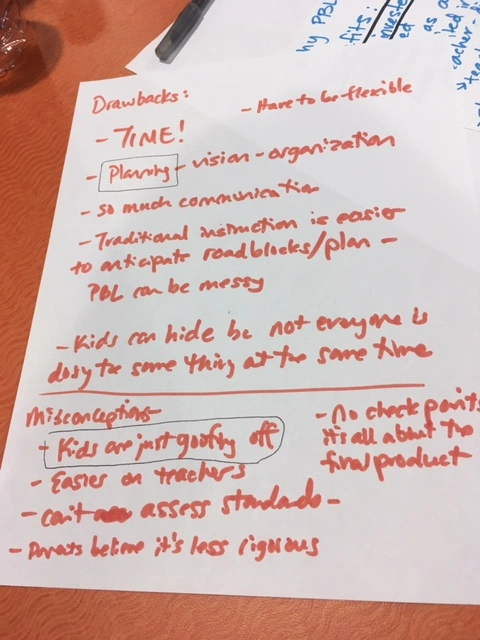 Drawbacks:
- Have to be flexible
- TIME!
- Planning - vision - organization
- so much communication
- Traditional instruction is easier
to anticipate roadblocks/plan -
PBL can be messy
- Kids can hide bc not everyone is
doing the same thing at the same time
Misconceptions
- Kids are just goofing off
- Easier on teachers
- can't assess standards -
- Parents believe it's less rigorous
- No check points
it's all about the
final product
hy PBL
fits:
nvested
ed
as a
acher-